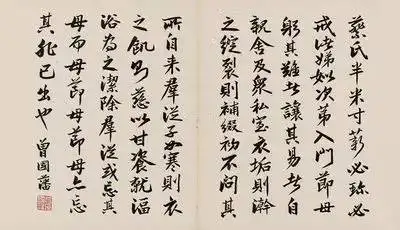 蔡氏半米寸薪必珍必
戒諸娣姒次第入門節母
躬其難者讓其易者自
親舍及衆私室衣垢則澣
之綻裂則補綴初不問其
所自来羣從子女寒則衣
之飢則慈以甘飡就湢
浴為之潔除羣從或忘其
母而母節母節母亦忘
其非己出也 曾國藩